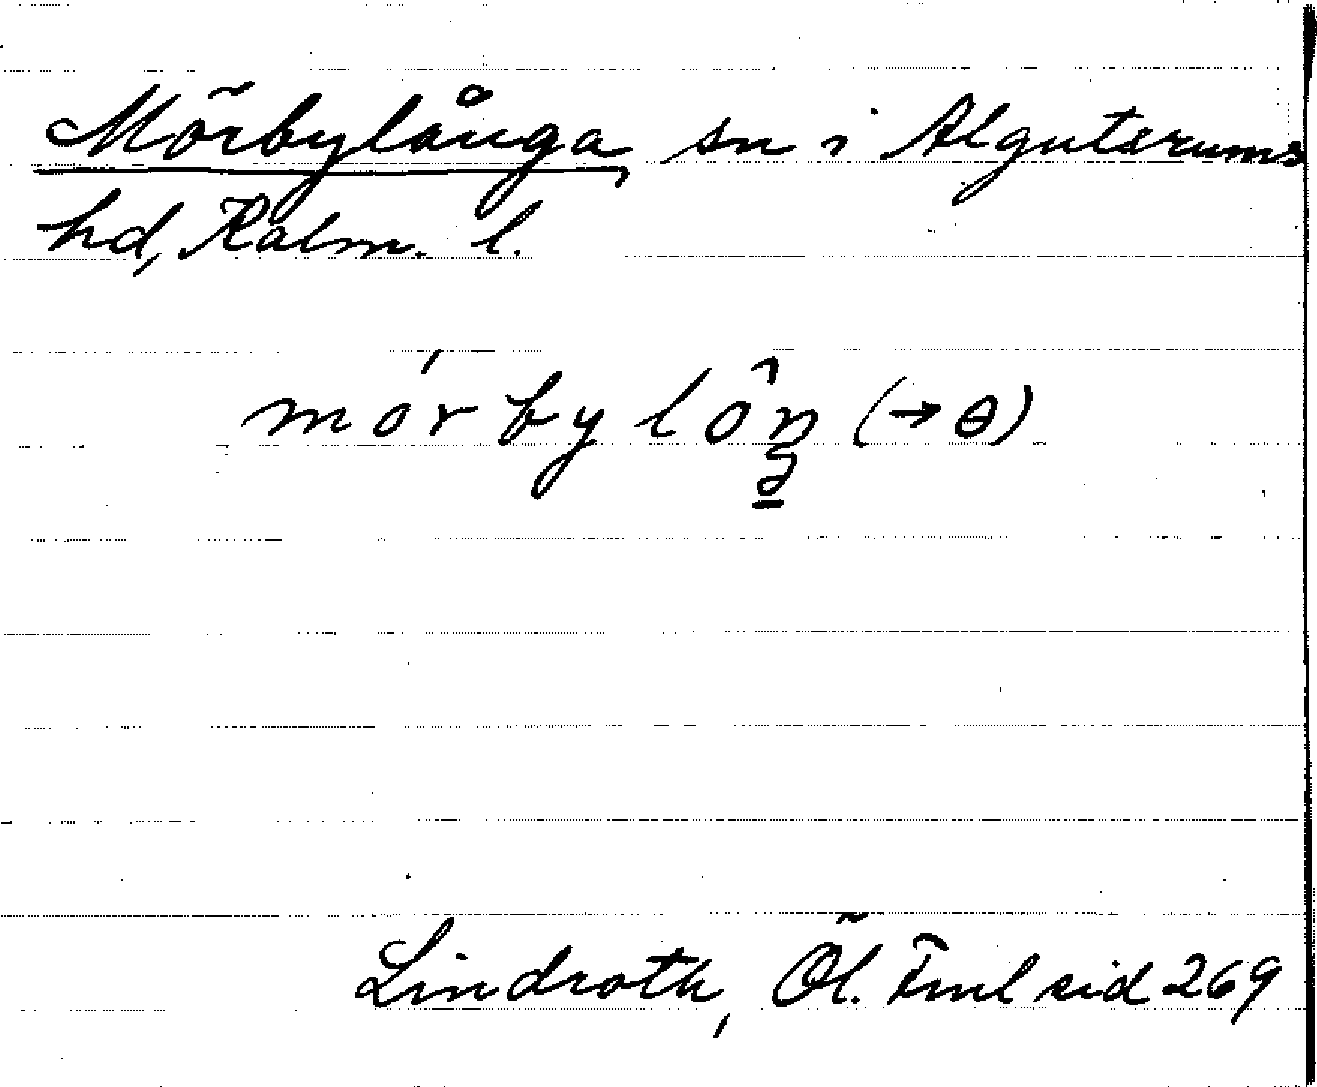 Mörbylånga, sn i Algutsrums
hd, Kalm. l.
mórbylôŋg (→ ɵ)
Lindroth, Öl. Fml sid 269